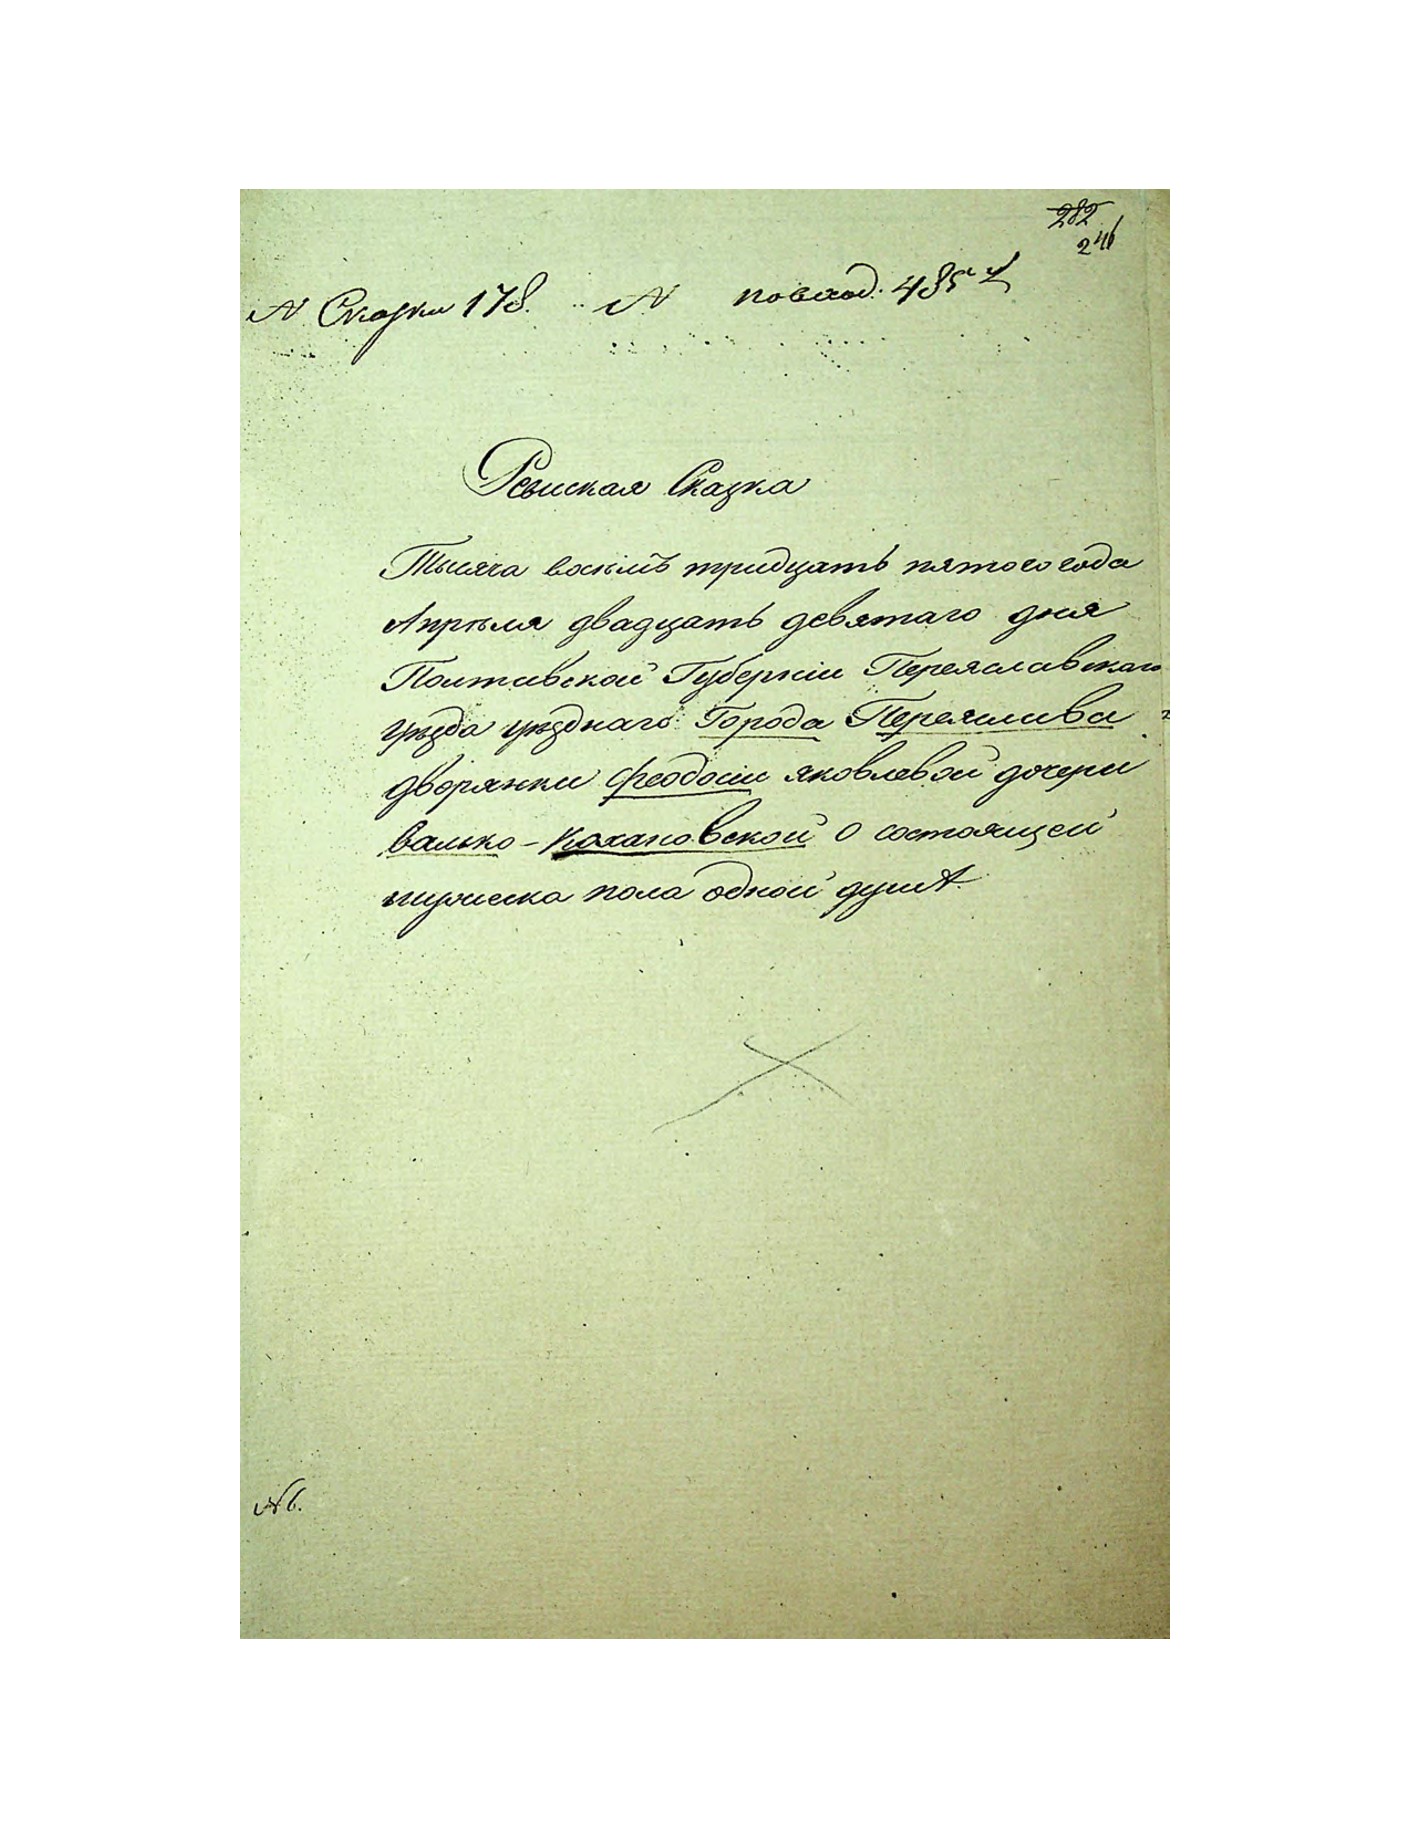 282
246
N Сказки 178. N по вход. 485
Ревиская Сказка
Тысяча восемъ тридцать пятого года
Апреля двадцать девятаго дня
Полтавской Губернии Переяславскаго
уезда уезднаго Города Переяслава
дворянки Феодосіи Яковлевой дочери
Валько-Кохановской о состоящей
мужеска пола одной душѣ.
N 6.